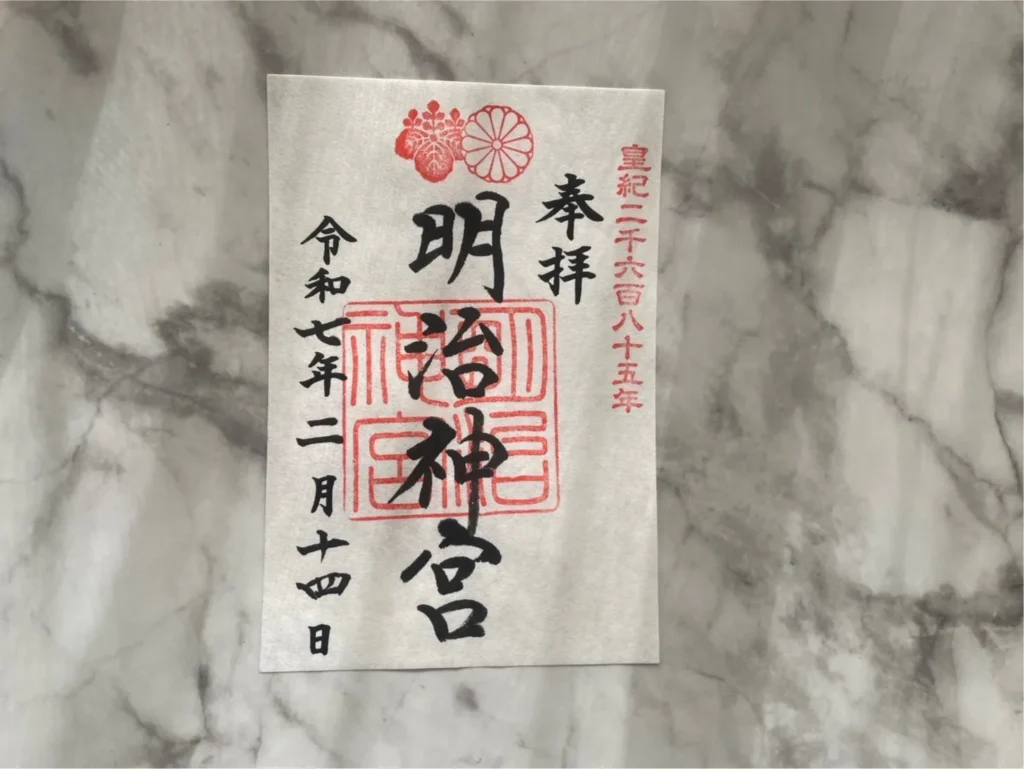 皇紀二千六百八十五年
奉拝
明治神宮
明治神宮
令和七年二月十四日